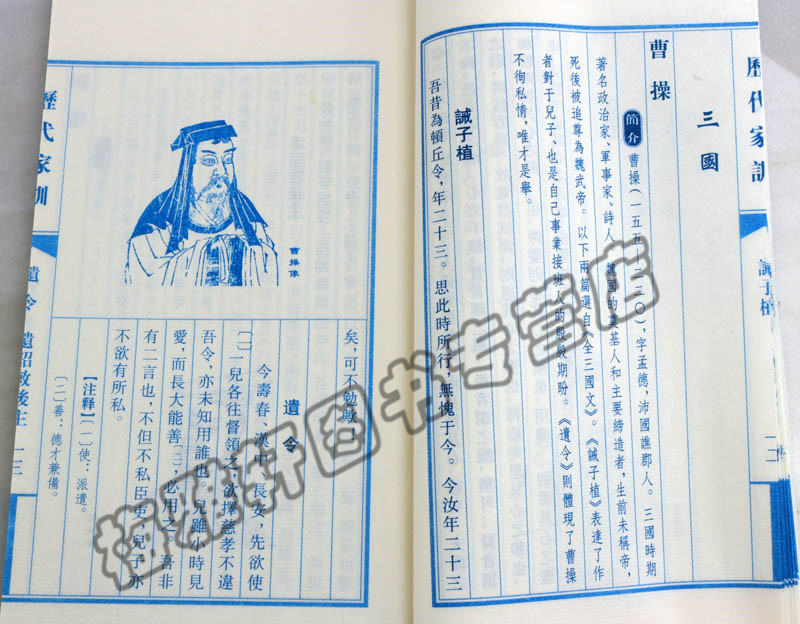 歷代家訓
誡子植
一二
三國
曹操
簡介 曹操(一五五—二二〇),字孟德,沛國譙郡人。三國時期
著名政治家、軍事家、詩人,魏國的奠基人和主要締造者,生前未稱帝,
死後被追尊為魏武帝。以下兩篇選自《全三國文》。《誡子植》表達了作
者對于兒子、也是自己事業接班人的殷殷期盼。《遺令》則體現了曹操
不徇私情,唯才是舉。
誡子植
吾昔為頓丘令,年二十三。思此時所行,無愧于今。今汝年二十三
矣,可不勉歟
遺令
今壽春、漢中、長安,先欲使
〔一〕一兒各往督領之,欲擇慈孝不違
吾令,亦未知用誰也。兒雖小時見
愛,而長大能善〔二〕,必用之。吾非
有二言也,不但不私臣吏,兒子亦
不欲有所私。
【注释】〔一〕使:派遣。
〔二〕善:德才兼備。
曹操像
歷代家訓
遺令 遺詔敕後主
一三
梅雅軒图书专营店